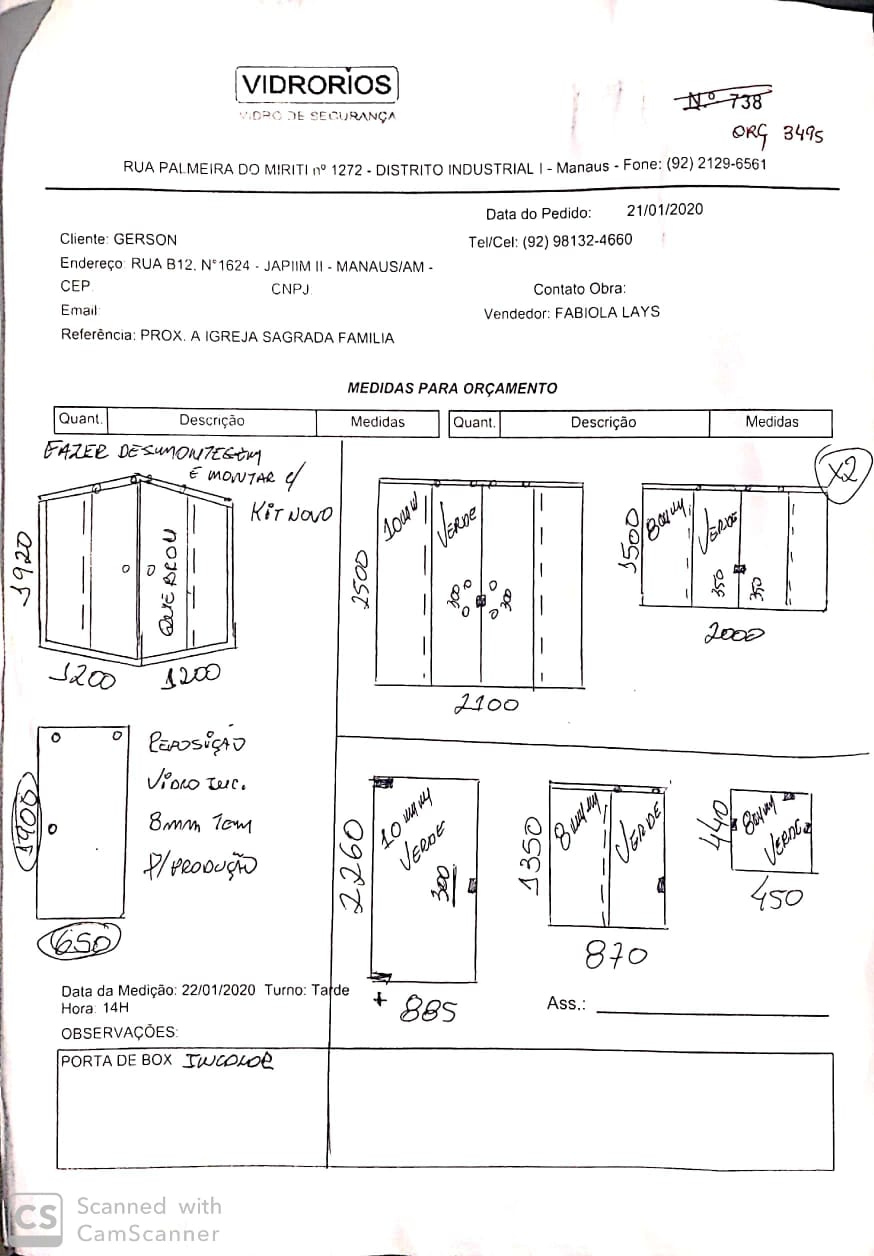 VIDRORIOS
VIDRO DE SEGURANÇA
Nº 738
ORÇ 3495
RUA PALMEIRA DO MIRITI nº 1272 - DISTRITO INDUSTRIAL I - Manaus - Fone: (92) 2129-6561
Data do Pedido: 21/01/2020
Cliente: GERSON
Tel/Cel: (92) 98132-4660
Endereço: RUA B12, N°1624 - JAPIIM II - MANAUS/AM -
CEP
CNPJ
Contato Obra:
Email:
Vendedor: FABIOLA LAYS
Referência: PROX. A IGREJA SAGRADA FAMILIA
MEDIDAS PARA ORÇAMENTO
Quant. Descrição Medidas Quant. Descrição Medidas
FAZER DESMONTEGEM
E MONTAR c/
KIT NOVO
1920
QUEBROU
1200 1200
10MM VERDE
2500
300 300
2100
X2
8MM VERDE
1500
350 350
2000
REPOSIÇÃO
VIDRO INC.
8mm TEM
P/PRODUÇÃO
1900
650
10MM
VERDE
2260
300
+ 885
8MM VERDE
1350
870
8MM
VERDE
440
450
Data da Medição: 22/01/2020 Turno: Tarde
Hora: 14H
Ass.:
OBSERVAÇÕES:
PORTA DE BOX INCOLOR
CS
Scanned with
CamScanner